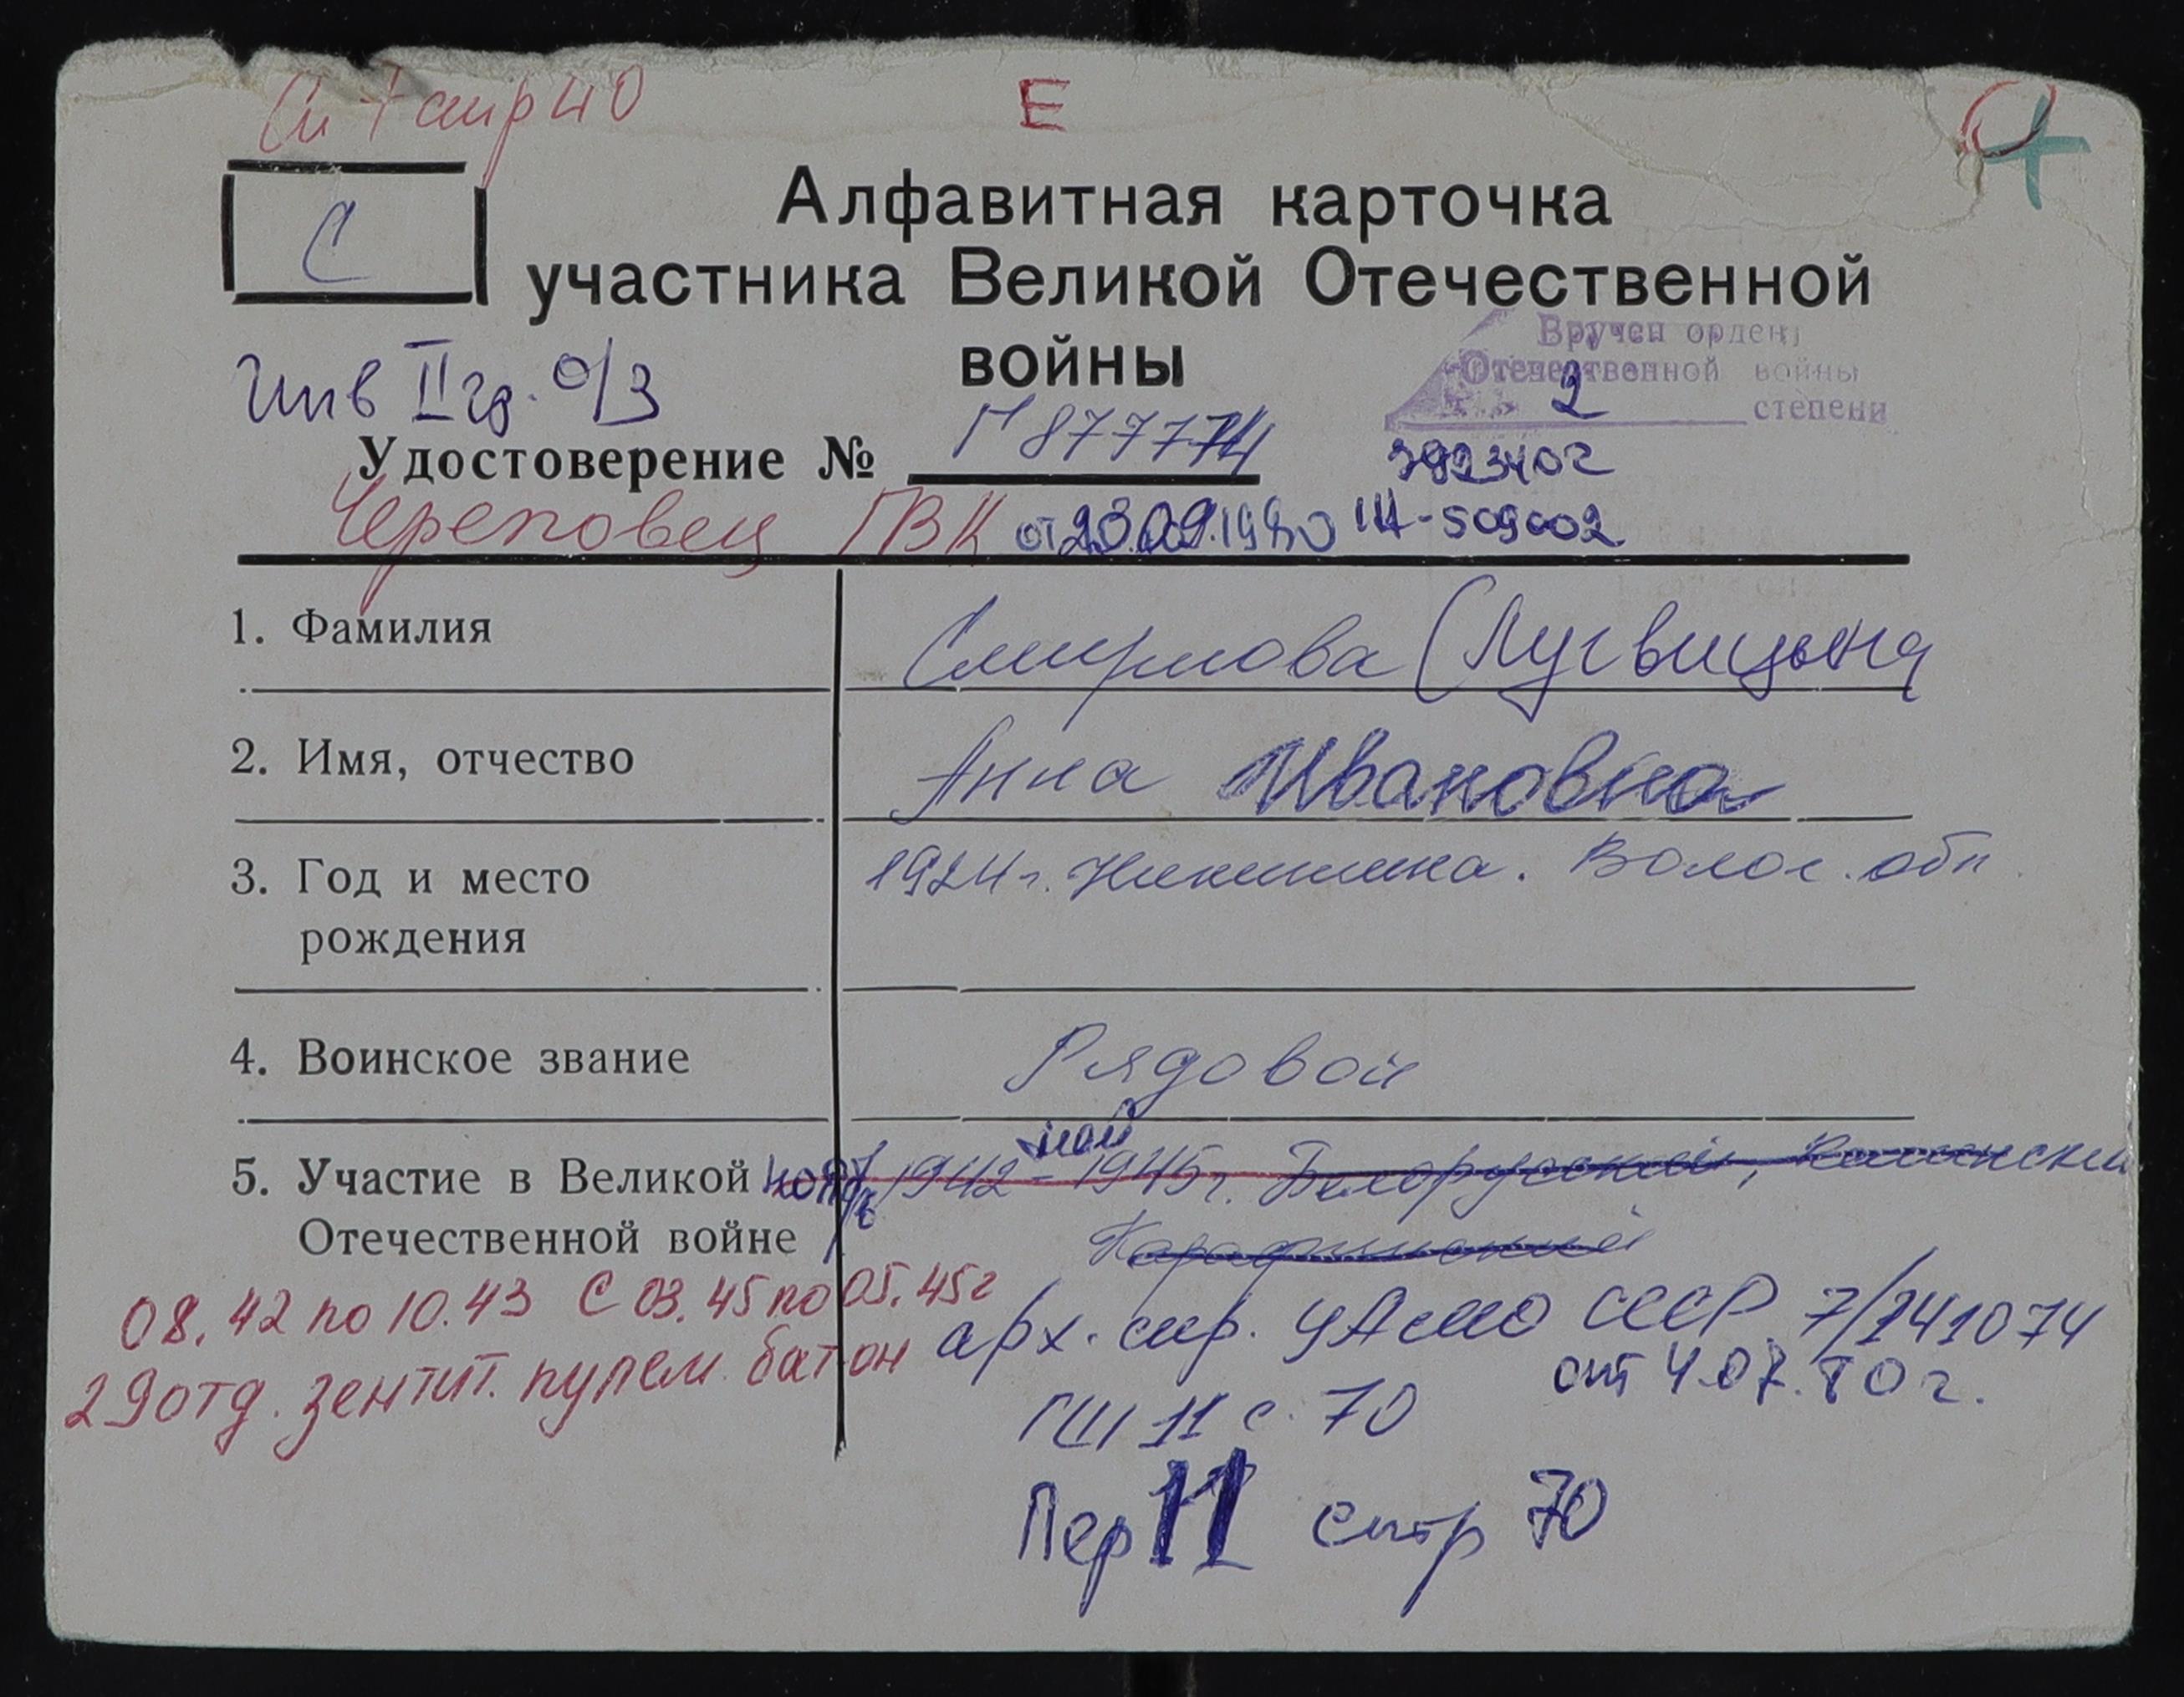 Е
С
Алфавитная карточка
участника Великой Отечественной
войны
Вручен орден
Отечественной войны
2 степени
Инв II гр. о/з
Удостоверение № Г 877774
3923402
Череповец ГВК от 1980 Ш-509002
1. Фамилия Смирнова (Лугвицына
2. Имя, отчество Анна Ивановна
3. Год и место 1924 г. Волог. обл
рождения
4. Воинское звание Рядовой
май
5. Участие в Великой ноябрь 1942 - 1945 г. Белорусский,
Отечественной войне
08.42 по 10.43 С 03.45 по 05.45г
арх. спр. ЦАСМО СССР 7/241074
29 отд. зентит. пулем. батон
от 4.07.80 г.
ГШ 11 с. 70
Пер 11 стр 70